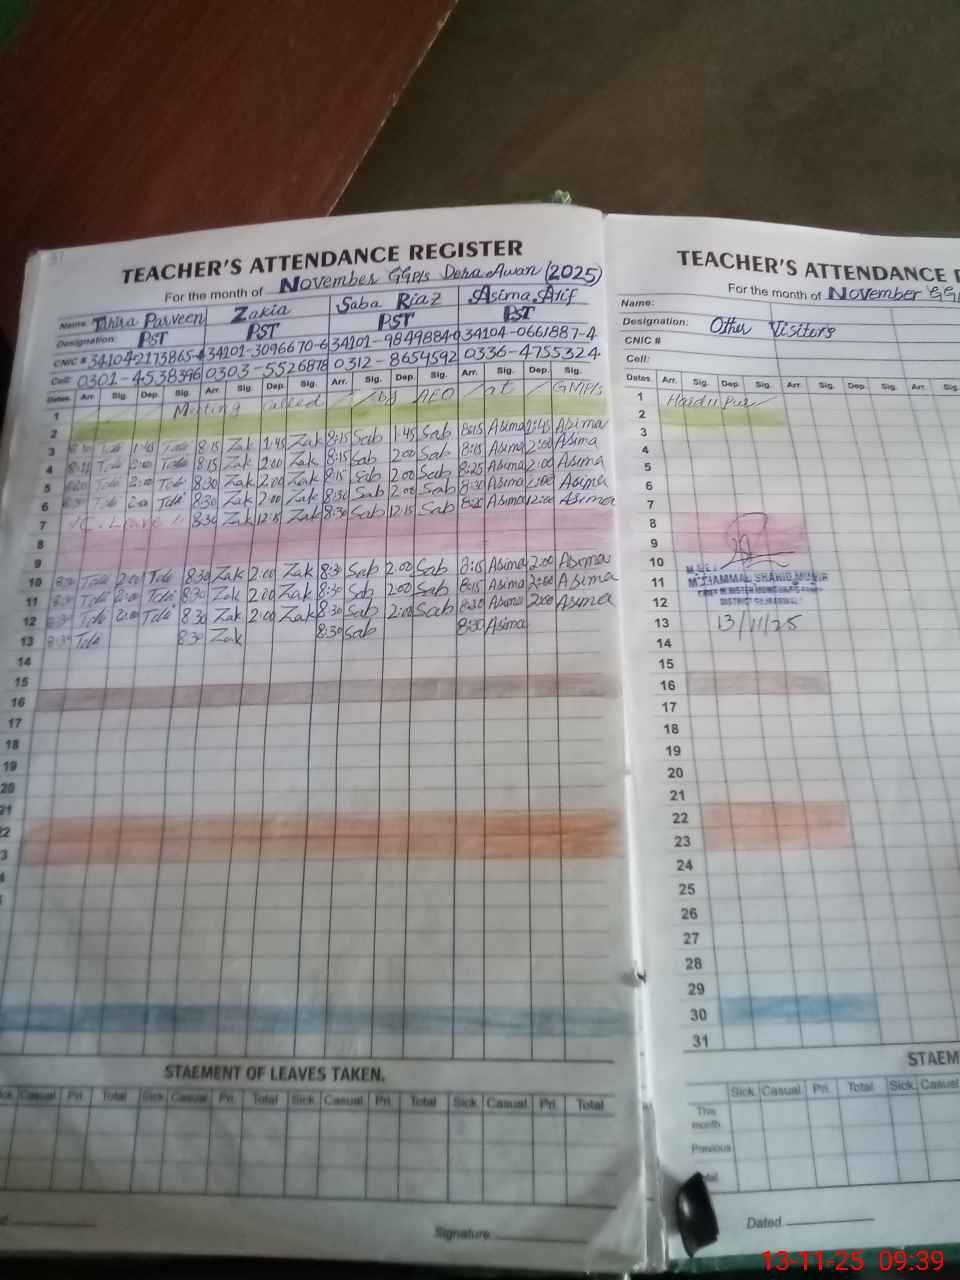 TEACHER'S ATTENDANCE REGISTER
For the month of November GGP/S Dera Awan (2025)
Name: Tahira Parveen Zakia Saba Riaz Asima Atif
Designation: PST PST PST PST
CNIC # 34104-2113865-4 34101-3096670-6 34101-9849884-0 34104-0661887-4
Cell: 0301-4538396 0303-5526878 0312-8654592 0336-4755324
Dates. Arr. Sig. Dep. Sig. Arr. Sig. Dep. Sig. Arr. Sig. Dep. Sig. Arr. Sig. Dep. Sig.
1 Meeting called by AEO at GMP/S
2
3 1:45 8:15 Zak 1:45 Zak 8:15 Sab 1:45 Sab 8:15 Asima 1:45 Asima
4 2:00 8:15 Zak 2:00 Zak 8:15 Sab 2:00 Sab 8:15 Asima 2:00 Asima
5 2:00 8:30 Zak 2:00 Zak 8:15 Sab 2:00 Sab 8:25 Asima 2:00 Asima
6 8:30 Zak 2:00 Zak 8:30 Sab 2:00 Sab 8:30 Asima 2:00 Asima
7 C. Leave 8:30 Zak 12:15 Zak 8:30 Sab 12:15 Sab 8:30 Asima 12:00 Asima
8
9
10 8:30 2:00 8:30 Zak 2:00 Zak 8:30 Sab 2:00 Sab 8:15 Asima 2:00 Asima
11 8:30 2:00 8:30 Zak 2:00 Zak 8:30 Sab 2:00 Sab 8:15 Asima 2:00 Asima
12 8:30 2:00 8:30 Zak 2:00 Zak 8:30 Sab 2:00 Sab 8:30 Asima 2:00 Asima
13 8:30 8:30 Zak 8:30 Sab 8:30 Asima
14
15
16
17
18
19
20
21
22
3
STAEMENT OF LEAVES TAKEN.
Sick Casual Pri. Total Sick Casual Pri. Total Sick Casual Pri. Total Sick Casual Pri. Total
Signature
TEACHER'S ATTENDANCE
For the month of November GG
Name:
Designation: Other Visitors
CNIC #
Cell:
Dates. Arr. Sig. Dep. Sig. Arr. Sig. Dep. Sig. Arr. Sig.
1
2
3
4
5
6
7
8
9
10
11 MUHAMMAD SHAHID
12
13 13/11/25
14
15
16
17
18
19
20
21
22
23
24
25
26
27
28
29
30
31
STAEM
Sick Casual Pri. Total Sick Casual
This month
Previous
Dated
13-11-25 09:39